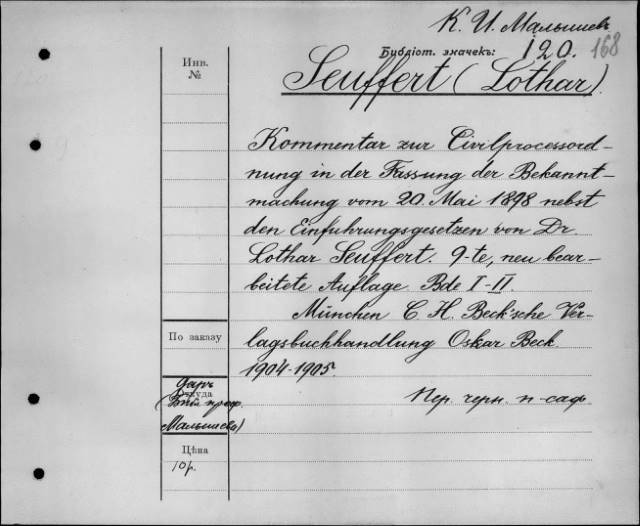 К. И. Малышевъ
Библіот. значекъ: 120. 168
Инв.
№
Seuffert (Lothar).
Kommentar zur Civilprocessord-
nung in der Fassung der Bekannt-
machung vom 20. Mai 1898 nebst
den Einfuhrungsgesetzen von Dr.
Lothar Seuffert. 9-te, neu bear-
beitete Auflage. Bde I-II.
München C. H. Beck'sche Ver-
По заказу
lagsbuchhandlung Oskar Beck.
1904-1905.
Даръ
Откуда
Пер. черн. п-саф
проф.
Малышева)
Цѣна
10 р.